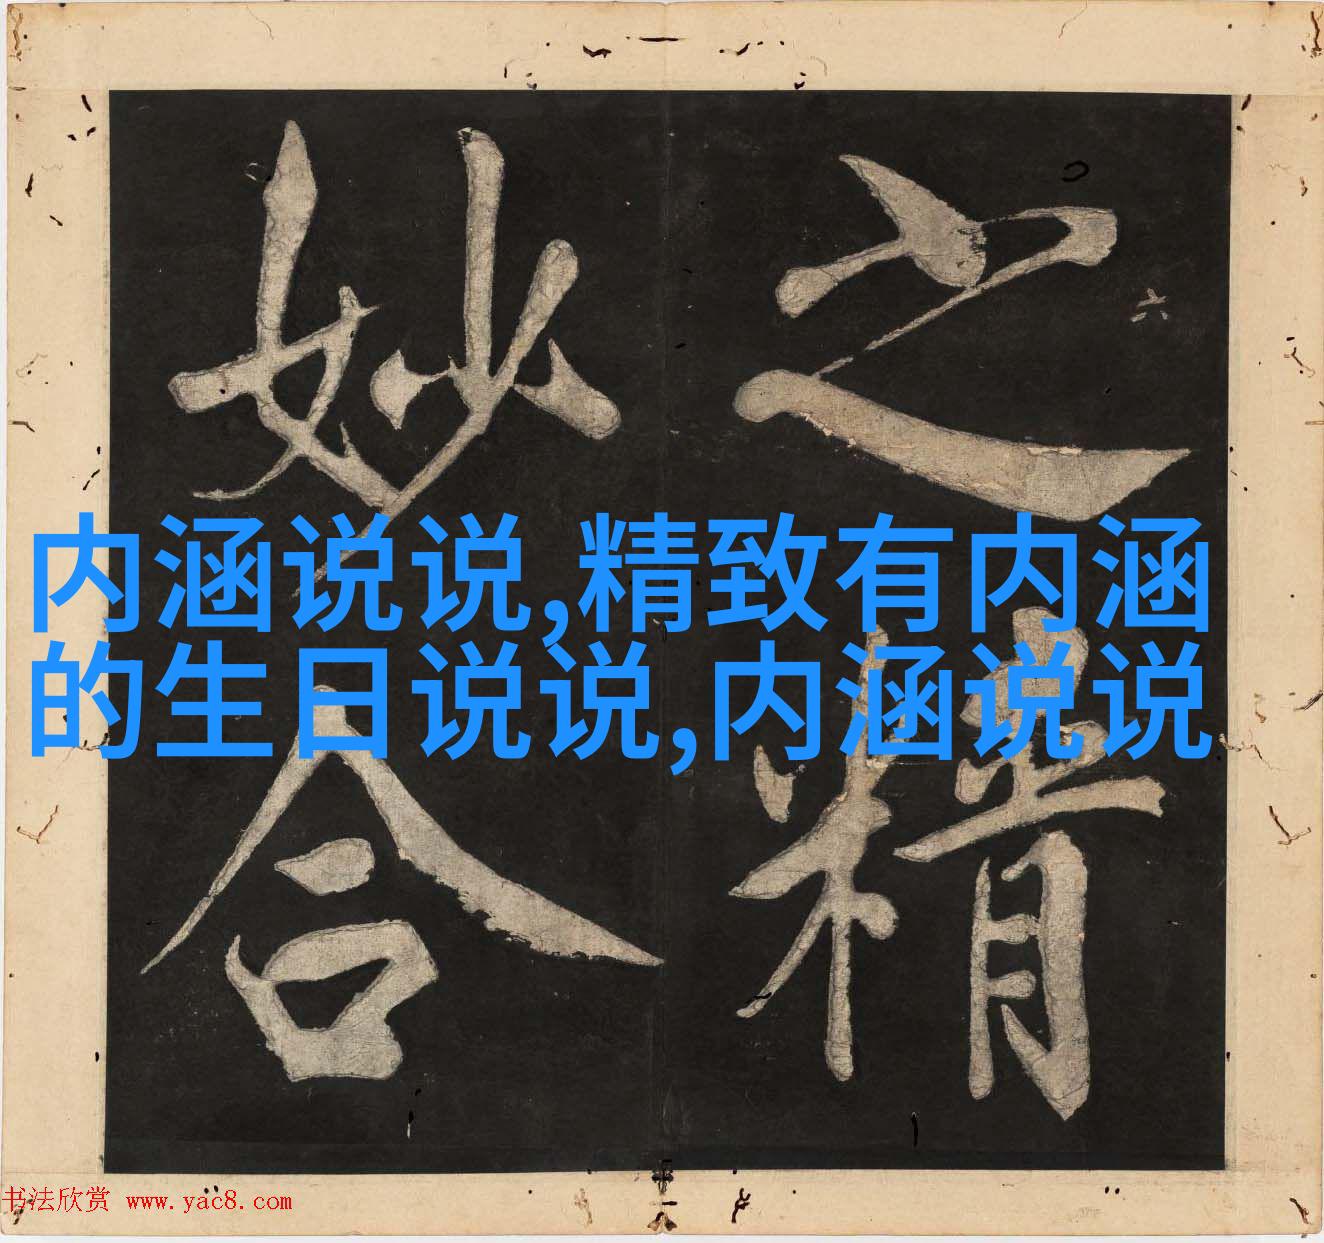 之精
妙合
六
内涵说说,精致有内涵
的生日说说,内涵说说
书法欣赏 www.yac8.com